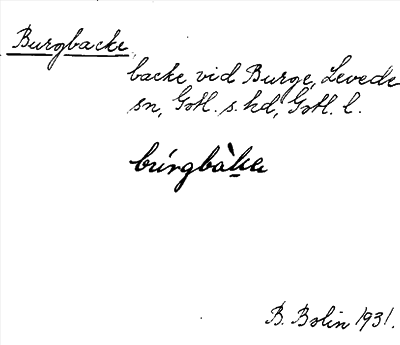 Burgbacke
backe vid Burge, Levede
sn, Gotl. s. hd, Gotl. l.
búrgbàka
B. Bolin 1931.